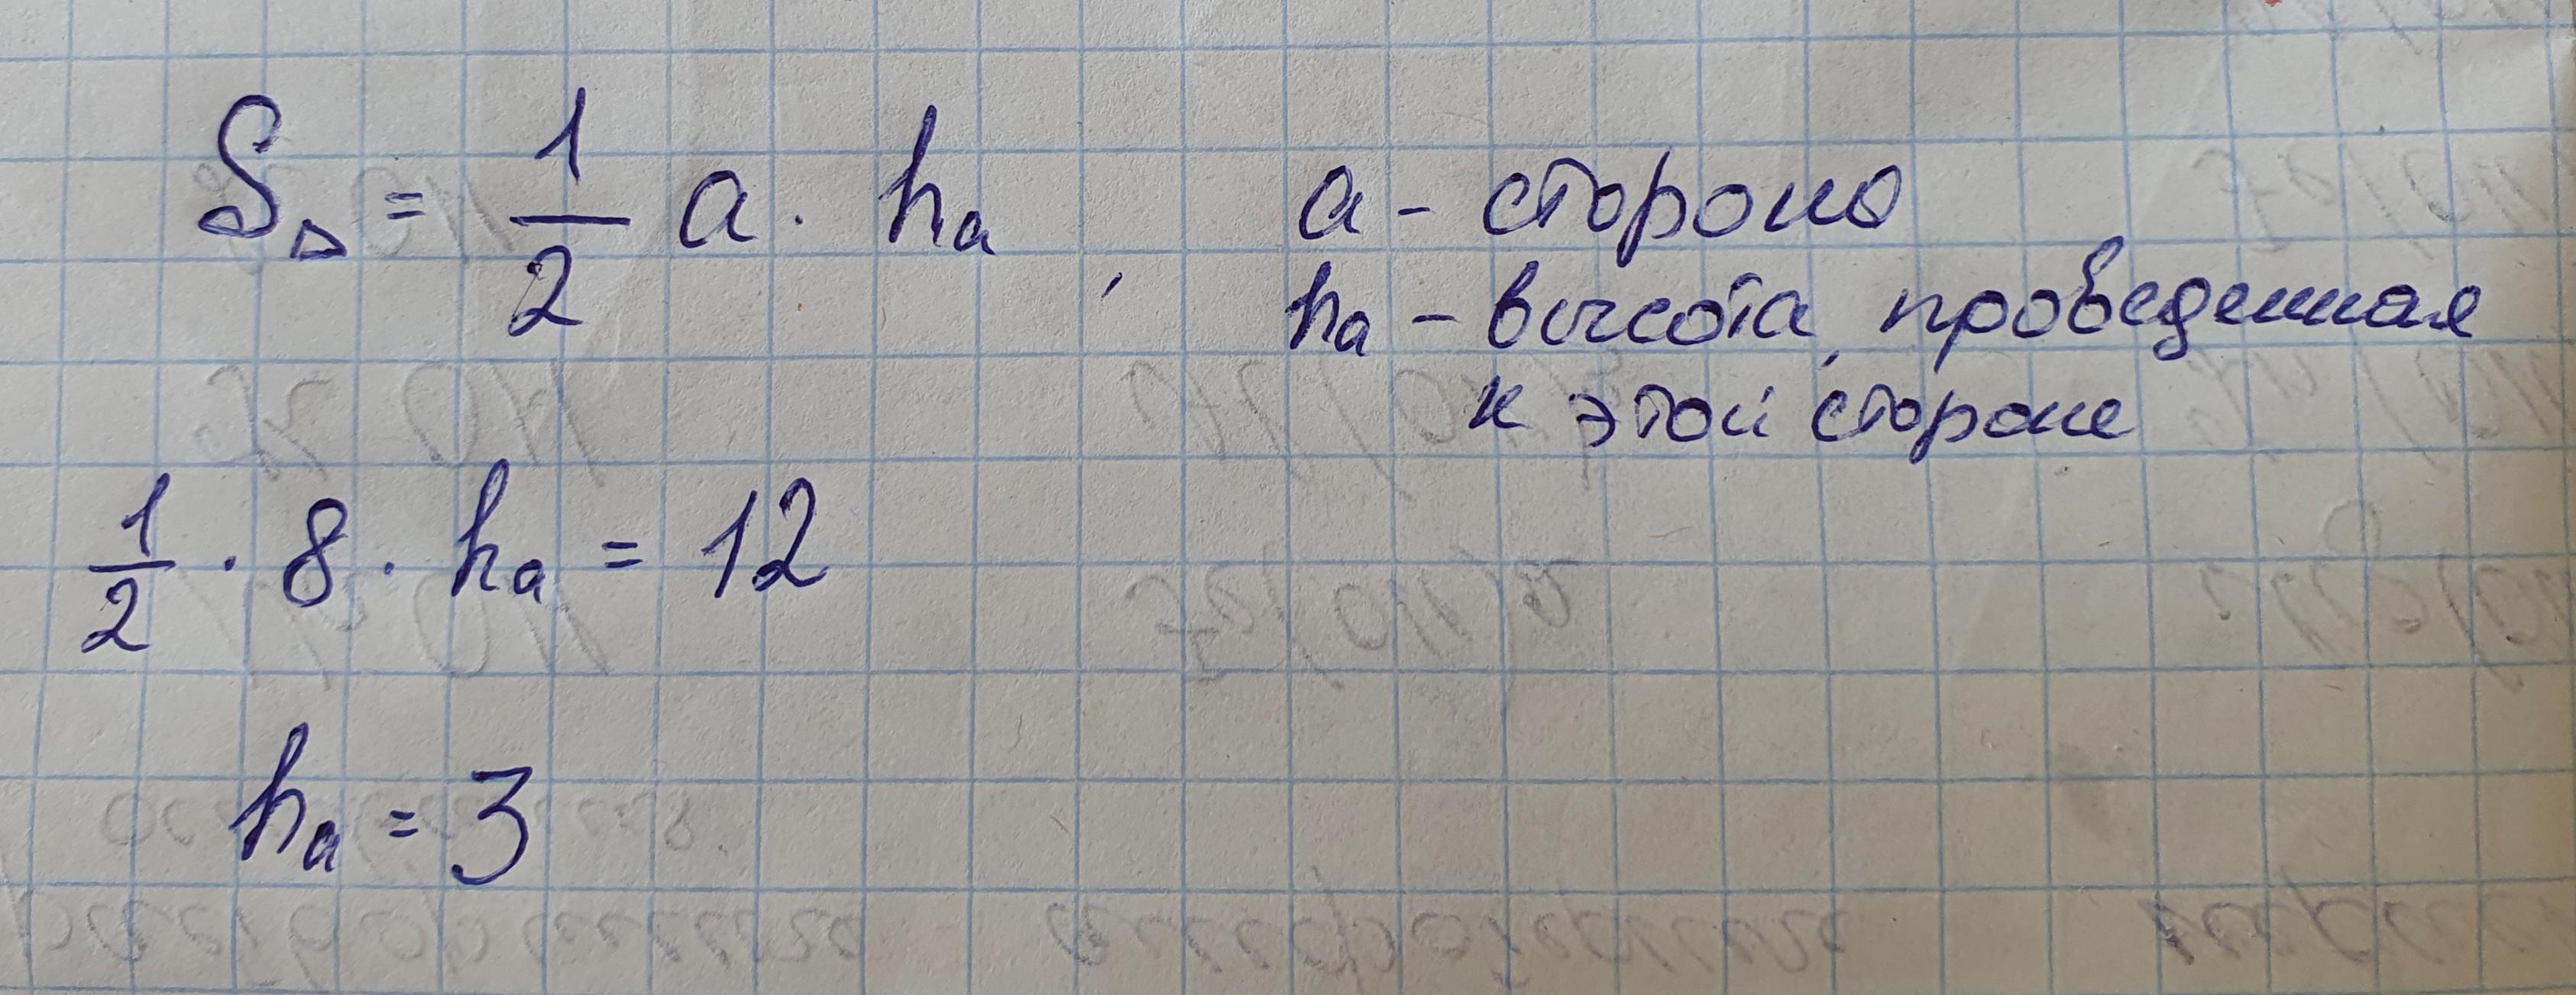 S△ = 1/2 a · hₐ , a - сторона
hₐ - высота, проведенная
к этой стороне
1/2 · 8 · hₐ = 12
hₐ = 3